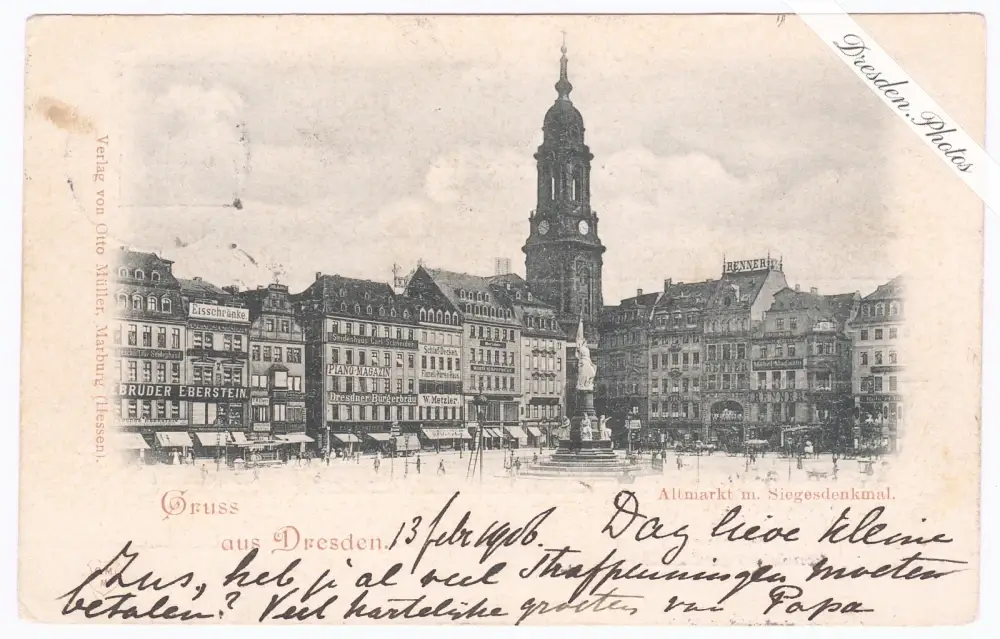 Dresden.Photos
RENNER
Eisschränke
Seidenhaus Carl Schneider
PIANO-MAGAZIN
BRÜDER EBERSTEIN
Dresdner Bürgerbräu
W. Metzler
RENNER
RENNER
Verlag von Otto Müller, Marburg (Hessen).
Altmarkt m. Siegesdenkmal.
Gruss
aus Dresden.
13 febr 1906. Dag lieve kleine
Zus, heb je al veel Strafpenningen moeten
betalen? Veel hartelijke groeten van Papa